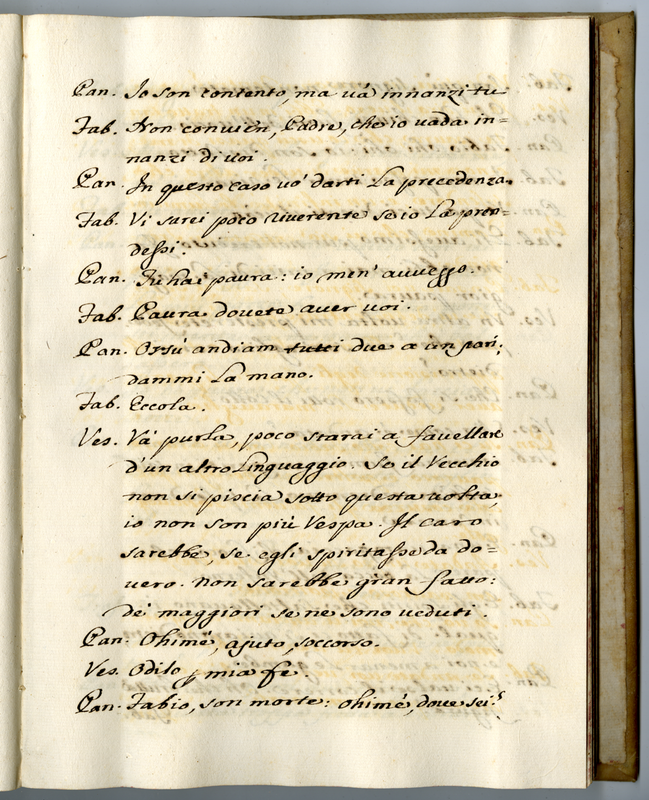 Pan. Io son contento, ma va' innanzi tu
Fab. Non convien, Padre, che io vada in=
nanzi di voi.
Pan. In questo caso vo' darti la precedenza.
Fab. Vi sarei poco riverente se io la pren=
dessi.
Pan. Tu hai paura: io men' avveggo.
Fab. Paura dovete aver voi.
Pan. Orsù andiam tutti due a un pari;
dammi la mano.
Fab. Eccola.
Ves. Và purla, poco starai a favellare
d'un altro linguaggio. Se il Vecchio
non si piscia sotto questa volta,
io non son più Vespa. Il caro
sarebbe, se egli spiritasse da do=
vero. non sarebbe gran fatto:
de' maggiori se ne sono veduti.
Pan. Ohimé, ajuto, soccorso.
Ves. Odilo mia fe.
Pan. Fabio, son morto: ohimé, dove sei?